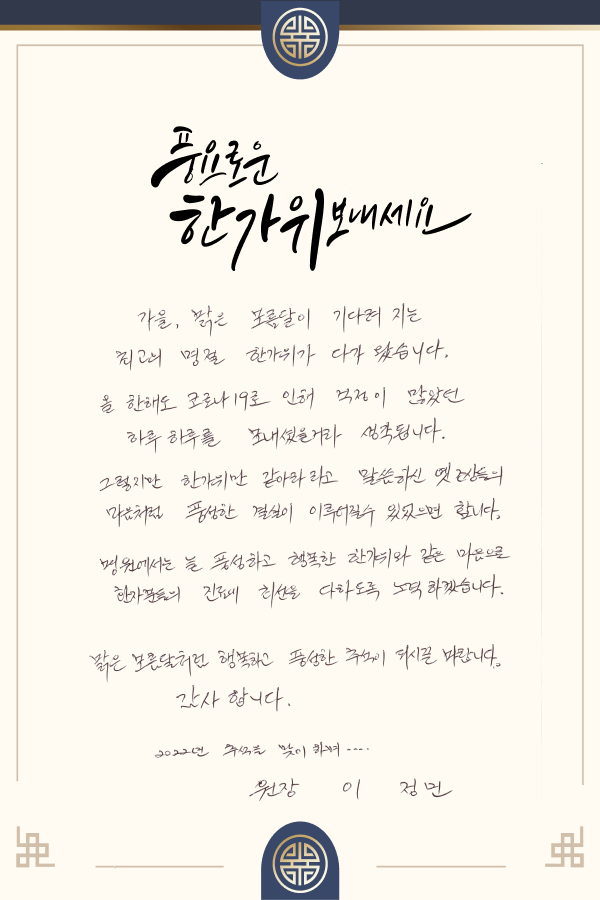 풍요로운
한가위 보내세요
가을, 밝은 보름달이 기다려 지는
최고의 명절 한가위가 다가 왔습니다.
올 한해도 코로나19로 인해 걱정이 많았던
하루 하루를 보내셨을거라 생각됩니다.
그렇지만 한가위만 같아라 라고 말씀하신 옛 조상들의
마음처럼 풍성한 결실이 이루어질수 있었으면 합니다.
병원에서는 늘 풍성하고 행복한 한가위와 같은 마음으로
환자분들의 진료에 최선을 다하도록 노력 하겠습니다.
밝은 보름달처럼 행복하고 풍성한 추석이 되시길 바랍니다.
감사 합니다.
2022년 추석을 맞이 하며 ....
원장 이 정민